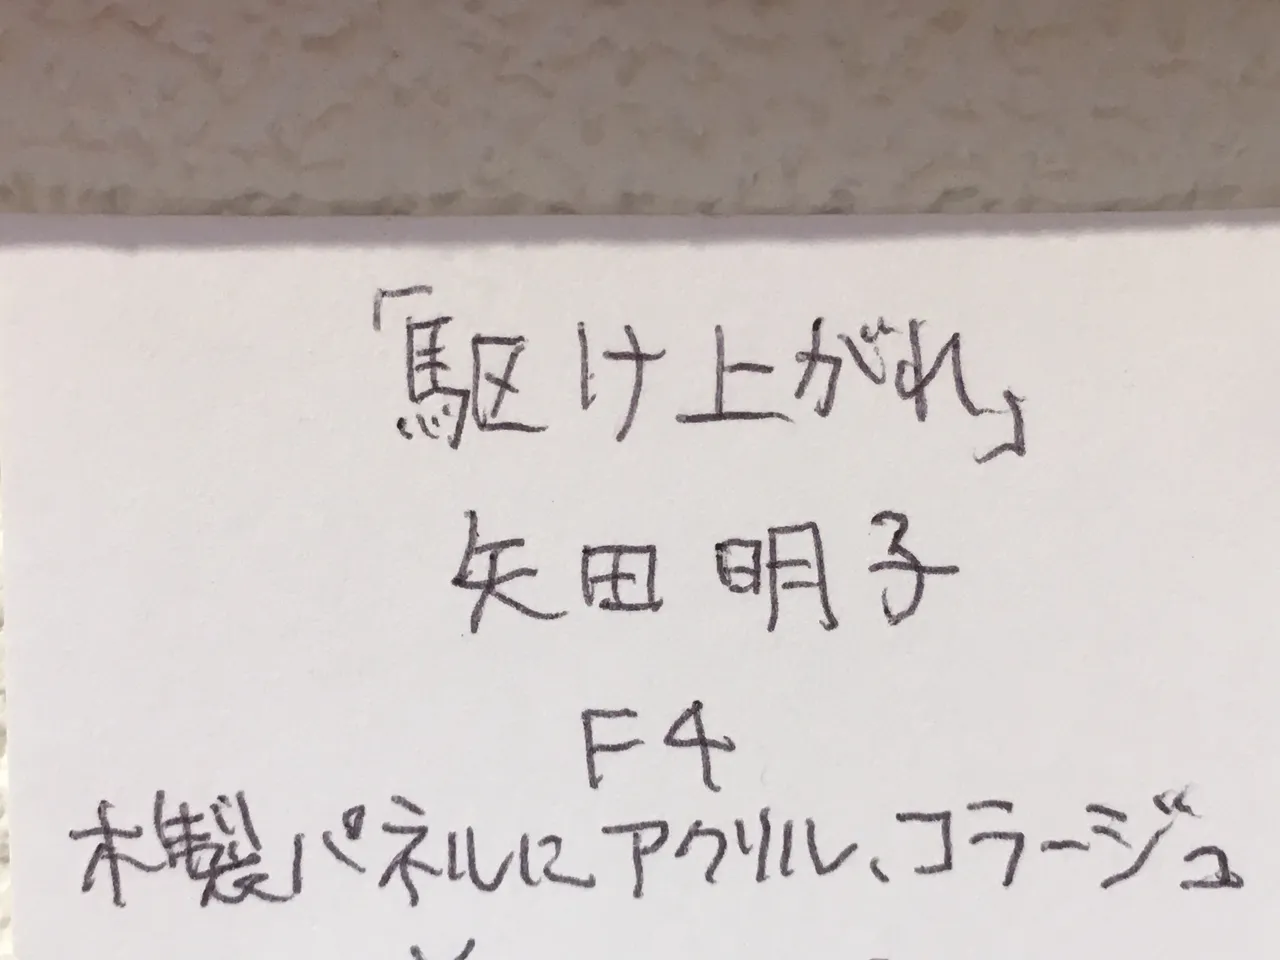 「駆け上がれ」
矢田明子
F4
木製パネルにアクリル、コラージュ